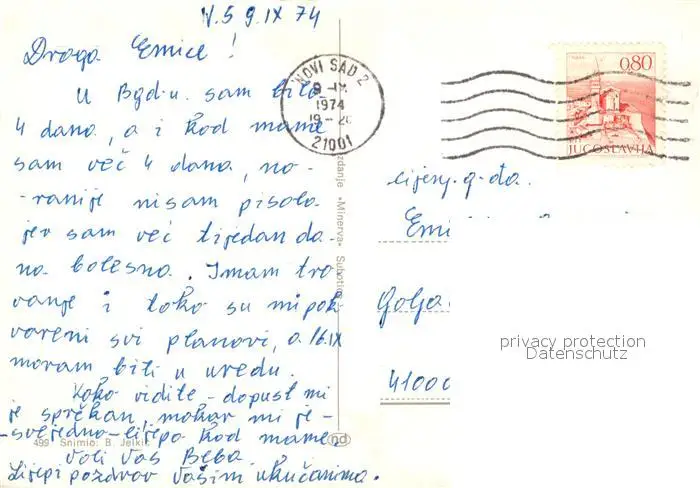 N.S 9.IX 74
Draga Emice!
U Bgd-u sam bila
4 dana, a i kod mame
sam već 4 dana, no-
-ranije nisam pisala
jer sam već tjedan da-
na bolesna. Imam tro-
vanje i tako su mi pok
vareni svi planovi, a 16.IX
moram biti u uredu.
Kako vidite - dopust mi
je sprčkan, makar mi je -
-svejedno-lijepo kod mame.
Voli Vas Beba
Lijepi pozdrav Vašim ukućanima.
499 Snimio: B. Jelkić
Izdanje «Minerva» Subotica
nd
NOVI SAD 2
9-IX.
1974
19-20
21001
0,80
JUGOSLAVIJA
cijenj. g-đa.
Emi
Golja
41000
privacy protection
Datenschutz